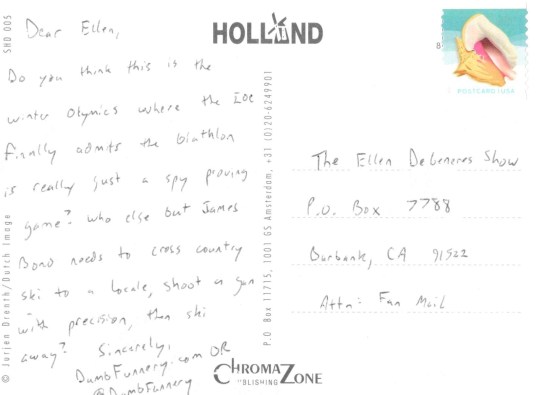 HOLLAND
Dear Ellen,
Do you think this is the
winter Olymics where the IOC
finally admits the biathlon
is really just a spy proving
game? Who else but James
Bond needs to cross country
ski to a locale, shoot a gun
with precision, then ski
away?
Sincerely,
DumbFunnery.com OR
@DumbFunnery
SHD 005
© Jurjen Drenth/Dutch Image
P.O Box 11715, 1001 GS Amsterdam, +31 (0)20-6249901
8
POSTCARD USA
The Ellen DeGeneres Show
P.O. Box 7788
Burbank, CA 91522
Attn: Fan Mail
CHROMAZONE
PUBLISHING